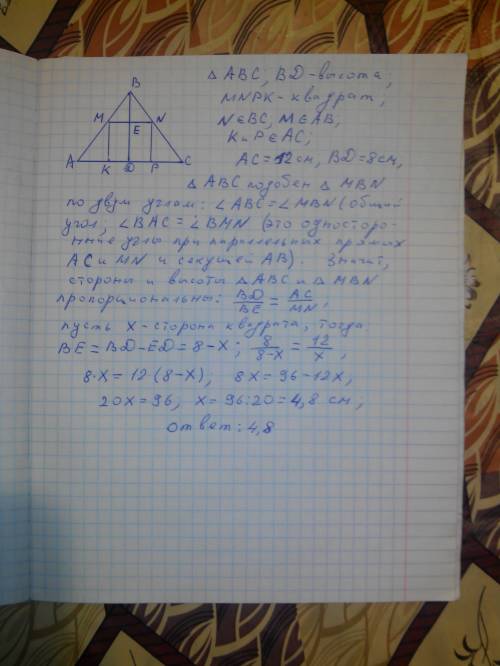 B
M N
E
A K D P C
Δ ABC, BD-высота,
MNPK-квадрат,
N∈BC, M∈AB,
K и P∈AC;
AC=12см, BD=8см,
Δ ABC подобен Δ MBN
по двум углам: ∠ABC=∠MBN (общий
угол; ∠BAC=∠BMN (это односторо-
нние углы при параллельных прямых
AC и MN и секущей AB). Значит,
стороны и высоты Δ ABC и Δ MBN
пропорциональны: BD/BE = AC/MN,
пусть x-сторона квадрата, тогда
BE=BD-ED=8-x; 8/8-x = 12/x,
8·x=12(8-x); 8x=96-12x,
20x=96, x=96:20=4,8 см;
ответ: 4,8